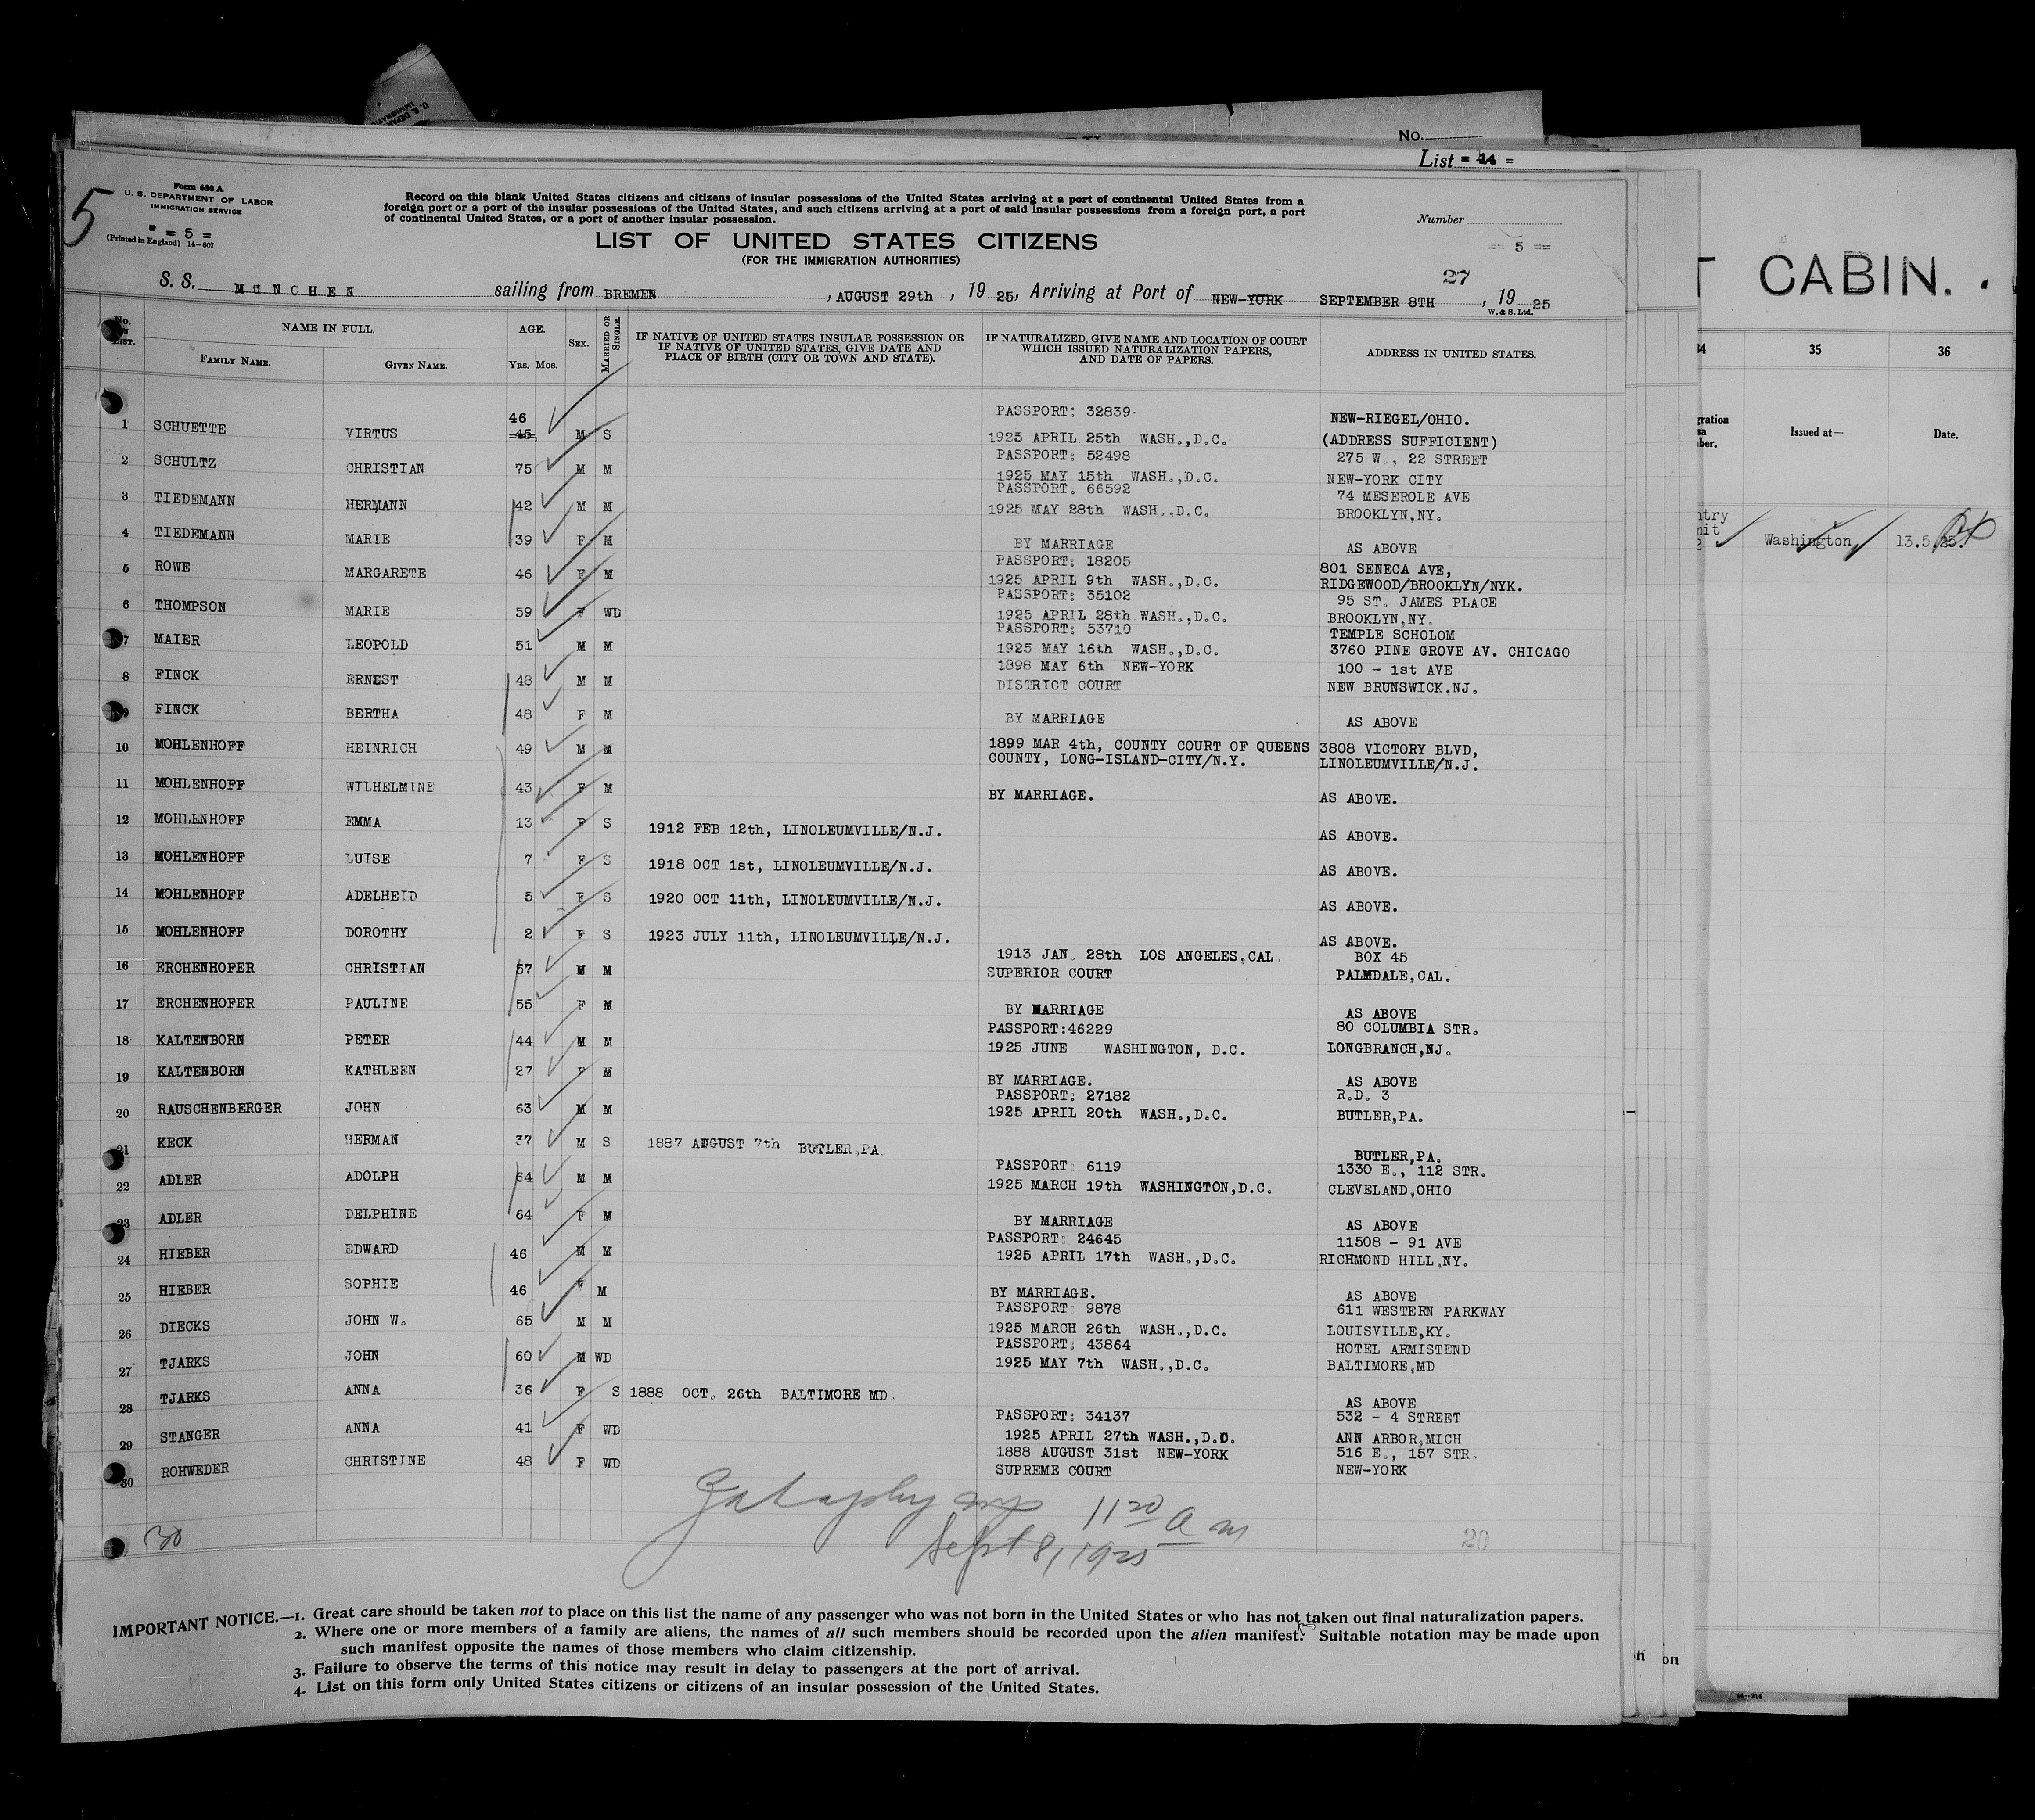 No.
List = 14 =
5
Form 630 A
U. S. DEPARTMENT OF LABOR
IMMIGRATION SERVICE
* = 5 =
(Printed in England) 14-607
Record on this blank United States citizens and citizens of insular possessions of the United States arriving at a port of continental United States from a
foreign port or a port of the insular possessions of the United States, and such citizens arriving at a port of said insular possessions from a foreign port, a port
of continental United States, or a port of another insular possession.
Number
== 5 ==
LIST OF UNITED STATES CITIZENS
(FOR THE IMMIGRATION AUTHORITIES)
27
S. S. MüNCHEN sailing from BREMEN, AUGUST 29th, 1925, Arriving at Port of NEW-YORK SEPTEMBER 8TH, 1925
W. & S. Ltd.
No. LIST. NAME IN FULL. AGE. SEX. MARRIED OR SINGLE. IF NATIVE OF UNITED STATES INSULAR POSSESSION OR IF NATIVE OF UNITED STATES, GIVE DATE AND PLACE OF BIRTH (CITY OR TOWN AND STATE). IF NATURALIZED, GIVE NAME AND LOCATION OF COURT WHICH ISSUED NATURALIZATION PAPERS, AND DATE OF PAPERS. ADDRESS IN UNITED STATES.
FAMILY NAME. GIVEN NAME. YRS. MOS.
46 PASSPORT: 32839. NEW-RIEGEL/OHIO.
1 SCHUETTE VIRTUS 45 M S 1925 APRIL 25th WASH.,D.C. (ADDRESS SUFFICIENT)
PASSPORT: 52498 275 W., 22 STREET
2 SCHULTZ CHRISTIAN 75 M M 1925 MAY 15th WASH.,D.C. NEW-YORK CITY
PASSPORT. 66592 74 MESEROLE AVE
3 TIEDEMANN HERMANN 42 M M 1925 MAY 28th WASH.,D.C. BROOKLYN,NY.
4 TIEDEMANN MARIE 39 F M BY MARRIAGE AS ABOVE
PASSPORT: 18205 801 SENECA AVE,
5 ROWE MARGARETE 46 F M 1925 APRIL 9th WASH.,D.C. RIDGEWOOD/BROOKLYN/NYK.
PASSPORT: 35102 95 ST. JAMES PLACE
6 THOMPSON MARIE 59 F WD 1925 APRIL 28th WASH.,D.C. BROOKLYN,NY.
PASSPORT: 53710 TEMPLE SCHOLOM
7 MAIER LEOPOLD 51 M M 1925 MAY 16th WASH.,D.C. 3760 PINE GROVE AV. CHICAGO
1898 MAY 6th NEW-YORK 100 - 1st AVE
8 FINCK ERNEST 48 M M DISTRICT COURT NEW BRUNSWICK.NJ.
9 FINCK BERTHA 48 F M BY MARRIAGE AS ABOVE
10 MOHLENHOFF HEINRICH 49 M M 1899 MAR 4th, COUNTY COURT OF QUEENS 3808 VICTORY BLVD,
COUNTY, LONG-ISLAND-CITY/N.Y. LINOLEUMVILLE/N.J.
11 MOHLENHOFF WILHELMINE 43 F M BY MARRIAGE. AS ABOVE.
12 MOHLENHOFF EMMA 13 F S 1912 FEB 12th, LINOLEUMVILLE/N.J. AS ABOVE.
13 MOHLENHOFF LUISE 7 F S 1918 OCT 1st, LINOLEUMVILLE/N.J. AS ABOVE.
14 MOHLENHOFF ADELHEID 5 F S 1920 OCT 11th, LINOLEUMVILLE/N.J. AS ABOVE.
15 MOHLENHOFF DOROTHY 2 F S 1923 JULY 11th, LINOLEUMVILLE/N.J. AS ABOVE.
1913 JAN. 28th LOS ANGELES,CAL. BOX 45
16 ERCHENHOFER CHRISTIAN 57 M M SUPERIOR COURT PALMDALE,CAL.
17 ERCHENHOFER PAULINE 55 F M BY MARRIAGE AS ABOVE
PASSPORT:46229 80 COLUMBIA STR.
18 KALTENBORN PETER 44 M M 1925 JUNE WASHINGTON, D.C. LONGBRANCH,NJ.
19 KALTENBORN KATHLEEN 27 F M BY MARRIAGE. AS ABOVE
PASSPORT: 27182 R.D. 3
20 RAUSCHENBERGER JOHN 63 M M 1925 APRIL 20th WASH.,D.C. BUTLER,PA.
21 KECK HERMAN 37 M S 1887 AUGUST 7th BUTLER,PA. BUTLER,PA.
PASSPORT: 6119 1330 E., 112 STR.
22 ADLER ADOLPH 64 M M 1925 MARCH 19th WASHINGTON,D.C. CLEVELAND,OHIO
23 ADLER DELPHINE 64 F M BY MARRIAGE AS ABOVE
PASSPORT: 24645 11508 - 91 AVE
24 HIEBER EDWARD 46 M M 1925 APRIL 17th WASH.,D.C. RICHMOND HILL,NY.
25 HIEBER SOPHIE 46 F M BY MARRIAGE. AS ABOVE
PASSPORT: 9878 611 WESTERN PARKWAY
26 DIECKS JOHN W. 65 M M 1925 MARCH 26th WASH.,D.C. LOUISVILLE,KY.
PASSPORT: 43864 HOTEL ARMISTEND
27 TJARKS JOHN 60 M WD 1925 MAY 7th WASH.,D.C. BALTIMORE,MD
28 TJARKS ANNA 36 F S 1888 OCT. 26th BALTIMORE MD. AS ABOVE
PASSPORT: 34137 532 - 4 STREET
29 STANGER ANNA 41 F WD 1925 APRIL 27th WASH.,D.C. ANN ARBOR,MICH
1888 AUGUST 31st NEW-YORK 516 E., 157 STR.
30 ROHWEDER CHRISTINE 48 F WD SUPREME COURT NEW-YORK
11 20 a m
Sept 8, 1925
30
20
IMPORTANT NOTICE.—1. Great care should be taken not to place on this list the name of any passenger who was not born in the United States or who has not taken out final naturalization papers.
2. Where one or more members of a family are aliens, the names of all such members should be recorded upon the alien manifest. Suitable notation may be made upon
such manifest opposite the names of those members who claim citizenship.
3. Failure to observe the terms of this notice may result in delay to passengers at the port of arrival.
4. List on this form only United States citizens or citizens of an insular possession of the United States.
T CABIN.
34 35 36
Issued at— Date.
Washington 13.5.25.
on
14-214